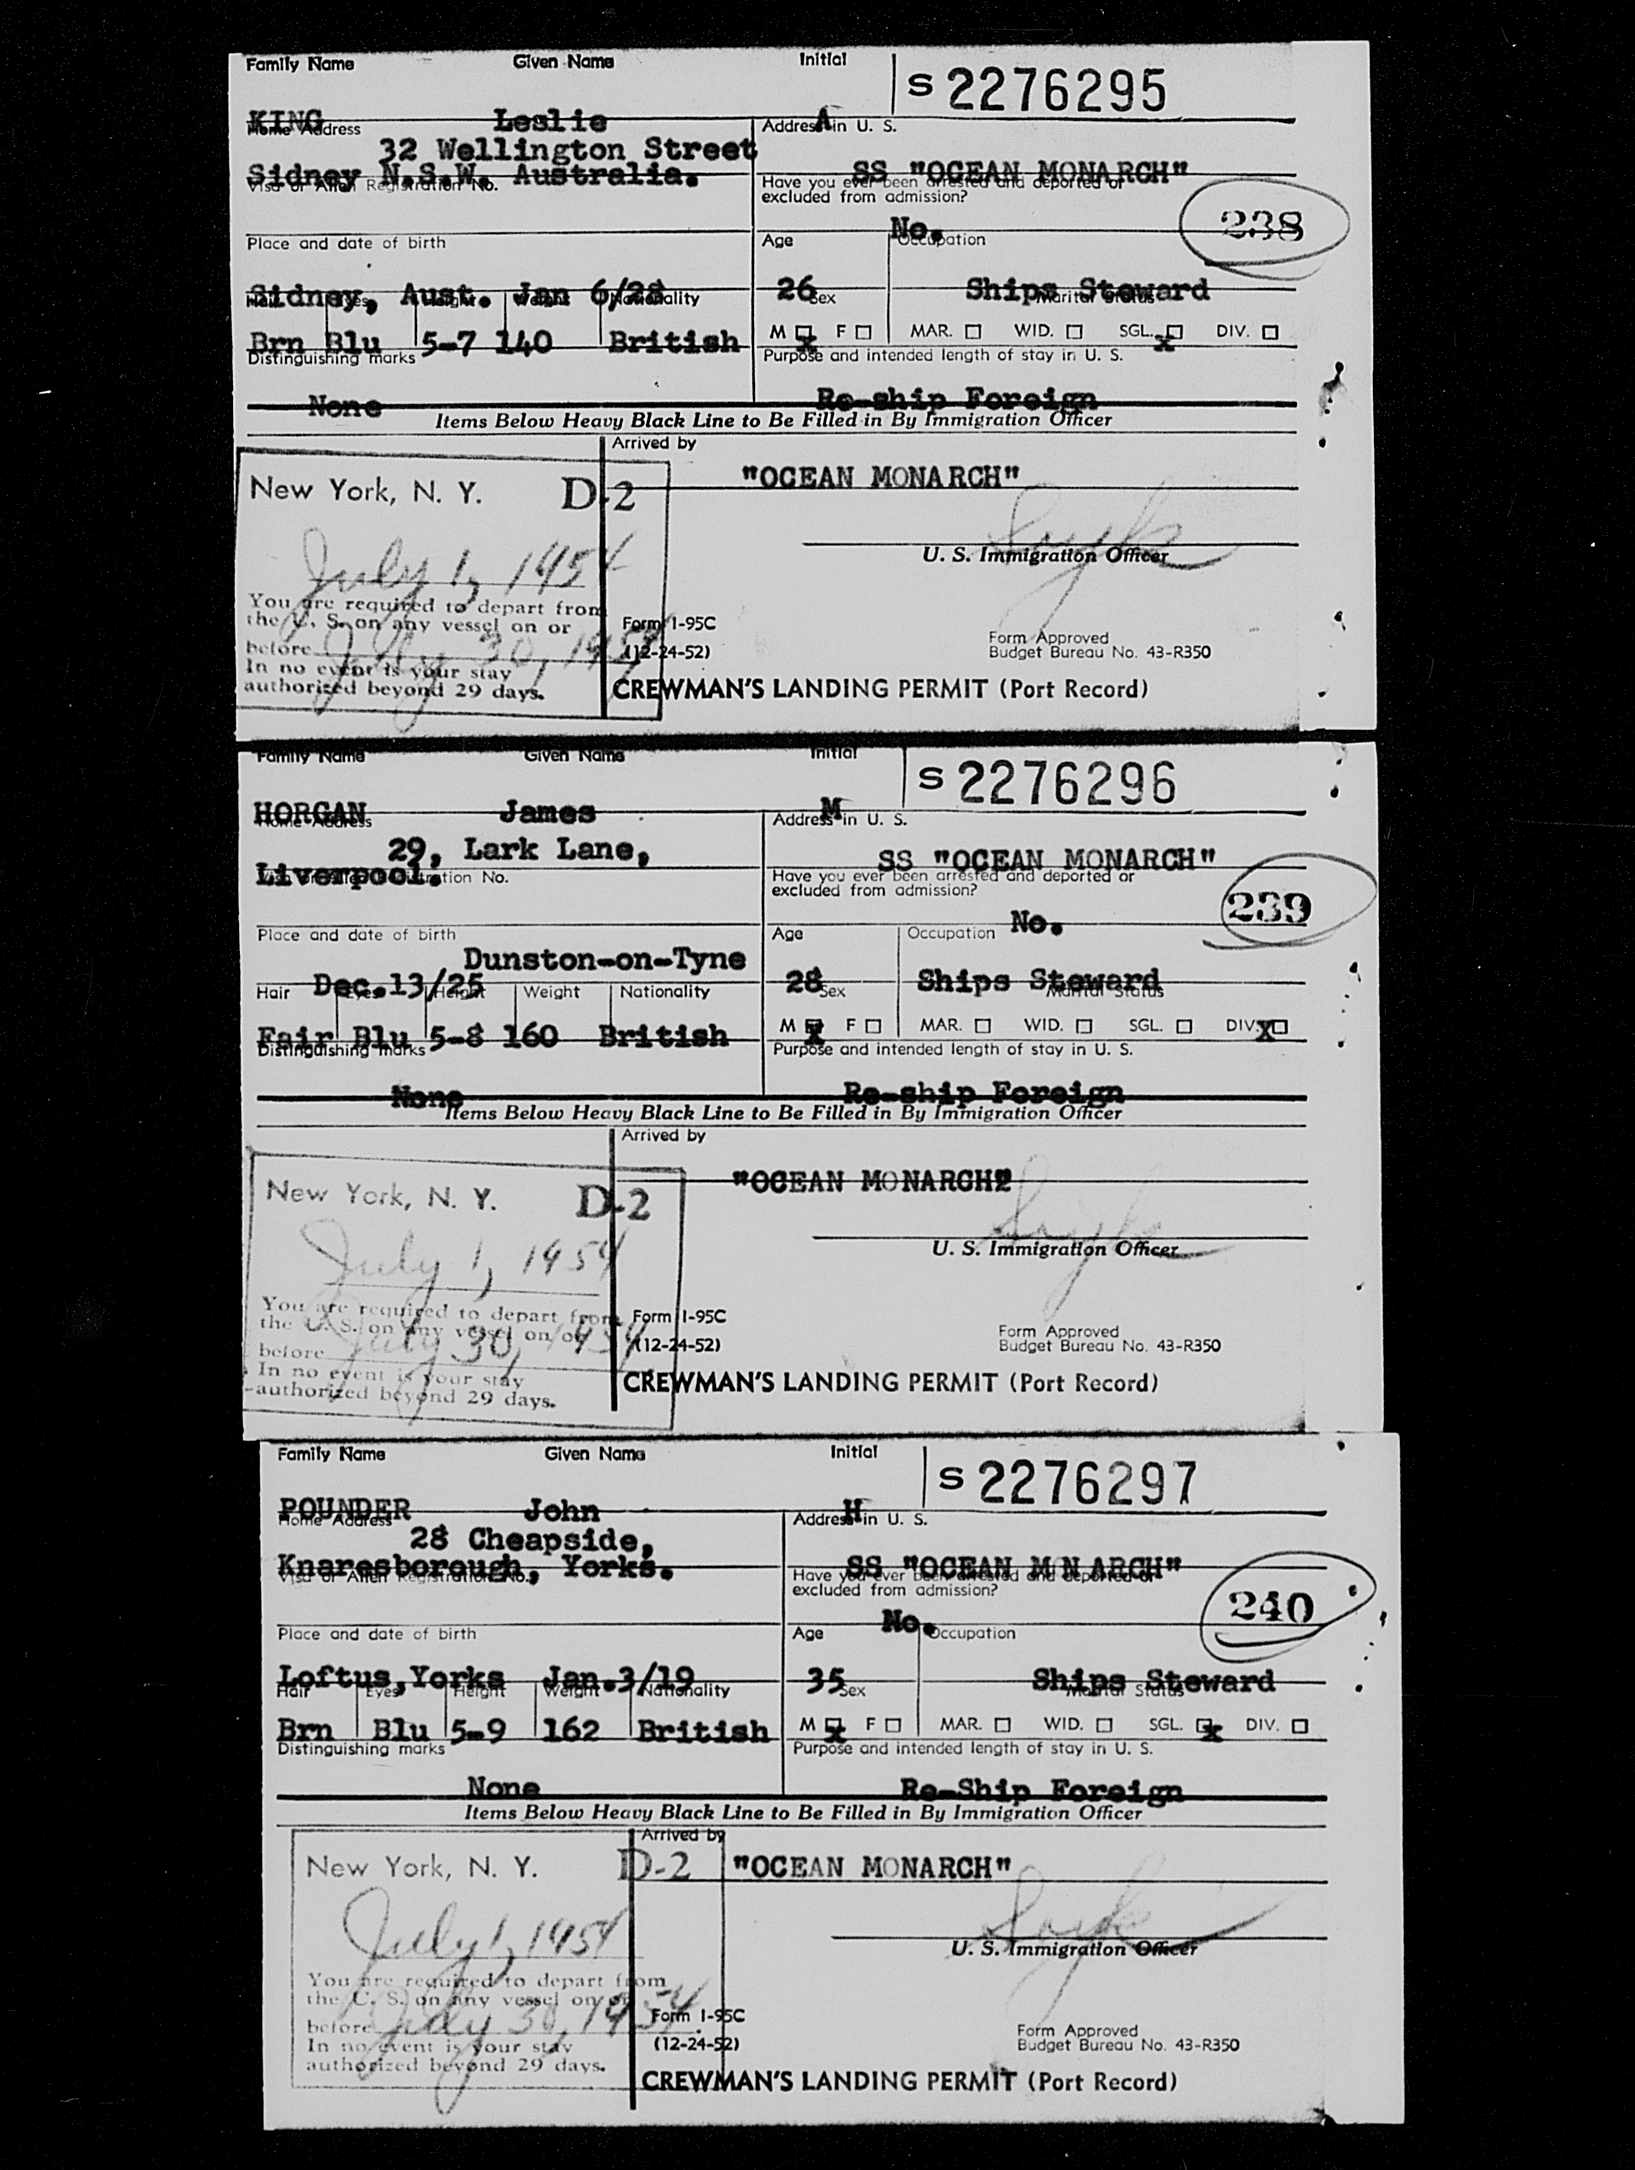 Family Name Given Name Initial
S 2276295
KING Leslie A
Home Address Address in U. S.
32 Wellington Street
Sidney N.S.W. Australia. SS "OCEAN MONARCH"
Visa or Alien Registration No. Have you ever been arrested and deported or
excluded from admission?
238
No.
Place and date of birth Age Occupation
Sidney, Aust. Jan 6/28 26 Ships Steward
Hair Eyes Height Weight Nationality Sex Marital Status
M x F MAR. WID. SGL. x DIV.
Brn Blu 5-7 140 British
Distinguishing marks Purpose and intended length of stay in U. S.
None Re-ship Foreign
Items Below Heavy Black Line to Be Filled in By Immigration Officer
Arrived by
"OCEAN MONARCH"
New York, N. Y. D-2
July 1, 1954
U. S. Immigration Officer
You are required to depart from
the U. S. on any vessel on or
before July 30, 1954
In no event is your stay
authorized beyond 29 days.
Form I-95C
(12-24-52)
Form Approved
Budget Bureau No. 43-R350
CREWMAN'S LANDING PERMIT (Port Record)
Family Name Given Name Initial
S 2276296
HORGAN James M
Home Address Address in U. S.
29, Lark Lane,
Liverpool. SS "OCEAN MONARCH"
Registration No. Have you ever been arrested and deported or
excluded from admission?
239
No.
Place and date of birth Age Occupation
Dunston-on-Tyne
Dec.13/25 28 Ships Steward
Hair Eyes Height Weight Nationality Sex Marital Status
M x F MAR. WID. SGL. DIV. X
Fair Blu 5-8 160 British
Distinguishing marks Purpose and intended length of stay in U. S.
None Re-ship Foreign
Items Below Heavy Black Line to Be Filled in By Immigration Officer
Arrived by
"OCEAN MONARCH"
New York, N. Y. D-2
July 1, 1954
U. S. Immigration Officer
You are required to depart from
the U. S. on any vessel on or
before July 30, 1954
In no event is your stay
authorized beyond 29 days.
Form I-95C
(12-24-52)
Form Approved
Budget Bureau No. 43-R350
CREWMAN'S LANDING PERMIT (Port Record)
Family Name Given Name Initial
S 2276297
POUNDER John H
Home Address Address in U. S.
28 Cheapside,
Knaresborough, Yorks. SS "OCEAN M N ARCH"
Visa or Alien Registration No. Have you ever been arrested and deported or
excluded from admission?
240
No.
Place and date of birth Age Occupation
Loftus, Yorks Jan.3/19 35 Ships Steward
Hair Eyes Height Weight Nationality Sex Marital Status
M x F MAR. WID. SGL. x DIV.
Brn Blu 5-9 162 British
Distinguishing marks Purpose and intended length of stay in U. S.
None Re-Ship Foreign
Items Below Heavy Black Line to Be Filled in By Immigration Officer
Arrived by
New York, N. Y. D-2 "OCEAN MONARCH"
July 1, 1954
U. S. Immigration Officer
You are required to depart from
the U. S. on any vessel on or
before July 30, 1954
In no event is your stay
authorized beyond 29 days.
Form I-95C
(12-24-52)
Form Approved
Budget Bureau No. 43-R350
CREWMAN'S LANDING PERMIT (Port Record)